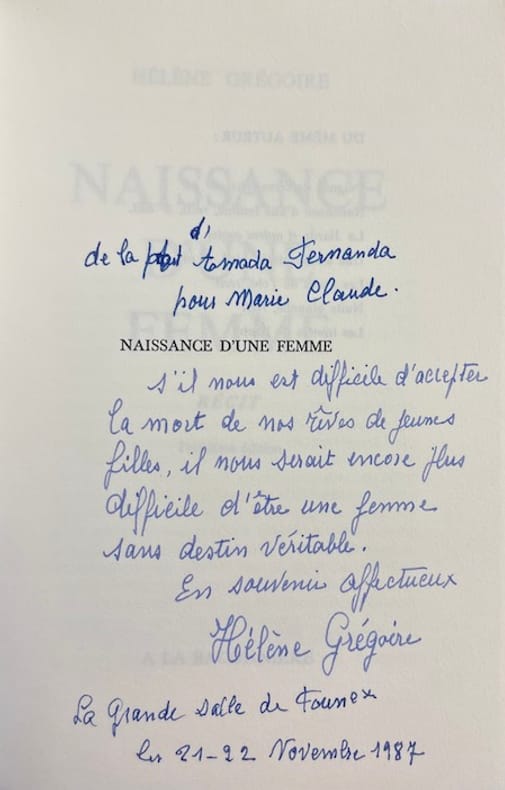 de la part d'Amada Fernanda
pour Marie Claude.
NAISSANCE D'UNE FEMME
s'il nous est difficile d'accepter
la mort de nos rêves de jeunes
filles, il nous serait encore plus
difficile d'être une femme
sans destin véritable.
En souvenir affectueux
Hélène Grégoire
La Grande Salle de Founex
les 21-22 Novembre 1987
HÉLÈNE GRÉGOIRE
DU MÊME AUTEUR :
NAISSANCE
D'UNE
FEMME
RÉCIT